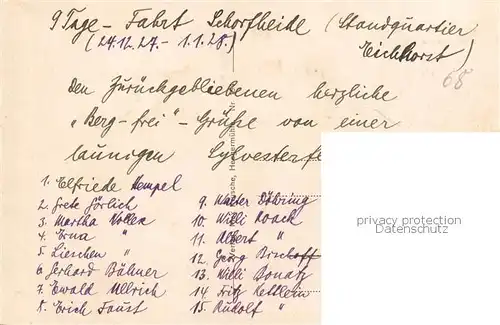 9 Tage - Fahrt Schorfheide (Standquartier
(24.12.27. - 1.1.28.) Eichhorst)
68
Den Zurückgebliebenen herzliche
„Berg-frei" - Grüße von einer
launigen Sylvesterf
1. Elfriede Hempel
2. Grete Görlich
3. Martha Nollen
4. Erna "
5. Lieschen "
6. Gerhard Bähner
7. Ewald Ullrich
8. Erich Faust
9. Walter Döhring
10. Willi Noack
11. Albert "
12. Georg Bischoff
13. Willi Bonatz
14. Fritz Kettlein
15. Rudolf "
privates Dokument
www.oldthing.de